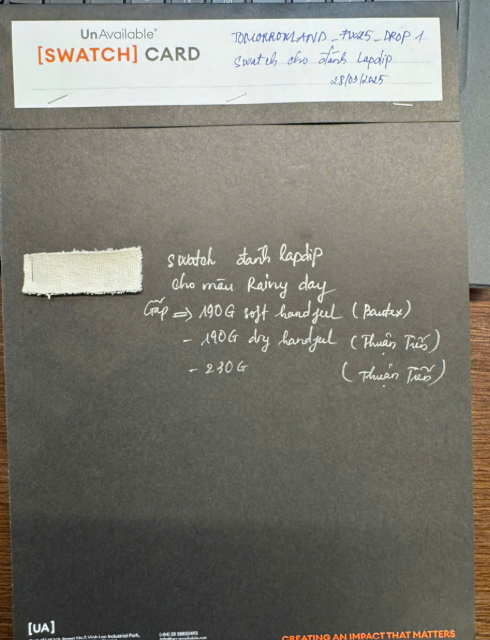 UnAvailable®
[SWATCH] CARD
TOMORROWLAND_FW25_DROP 1
Swatch cho đánh lapdip
28/03/2025
swatch đánh lapdip
cho màu Rainy day
Gấp => 190G soft handfeel (Pantex)
- 190G dry handfeel (Thuận Tiến)
- 230G (Thuận Tiến)
[UA]
Vinh Loc Industrial Park,
(+84) 28 38632493
CREATING AN IMPACT THAT MATTERS